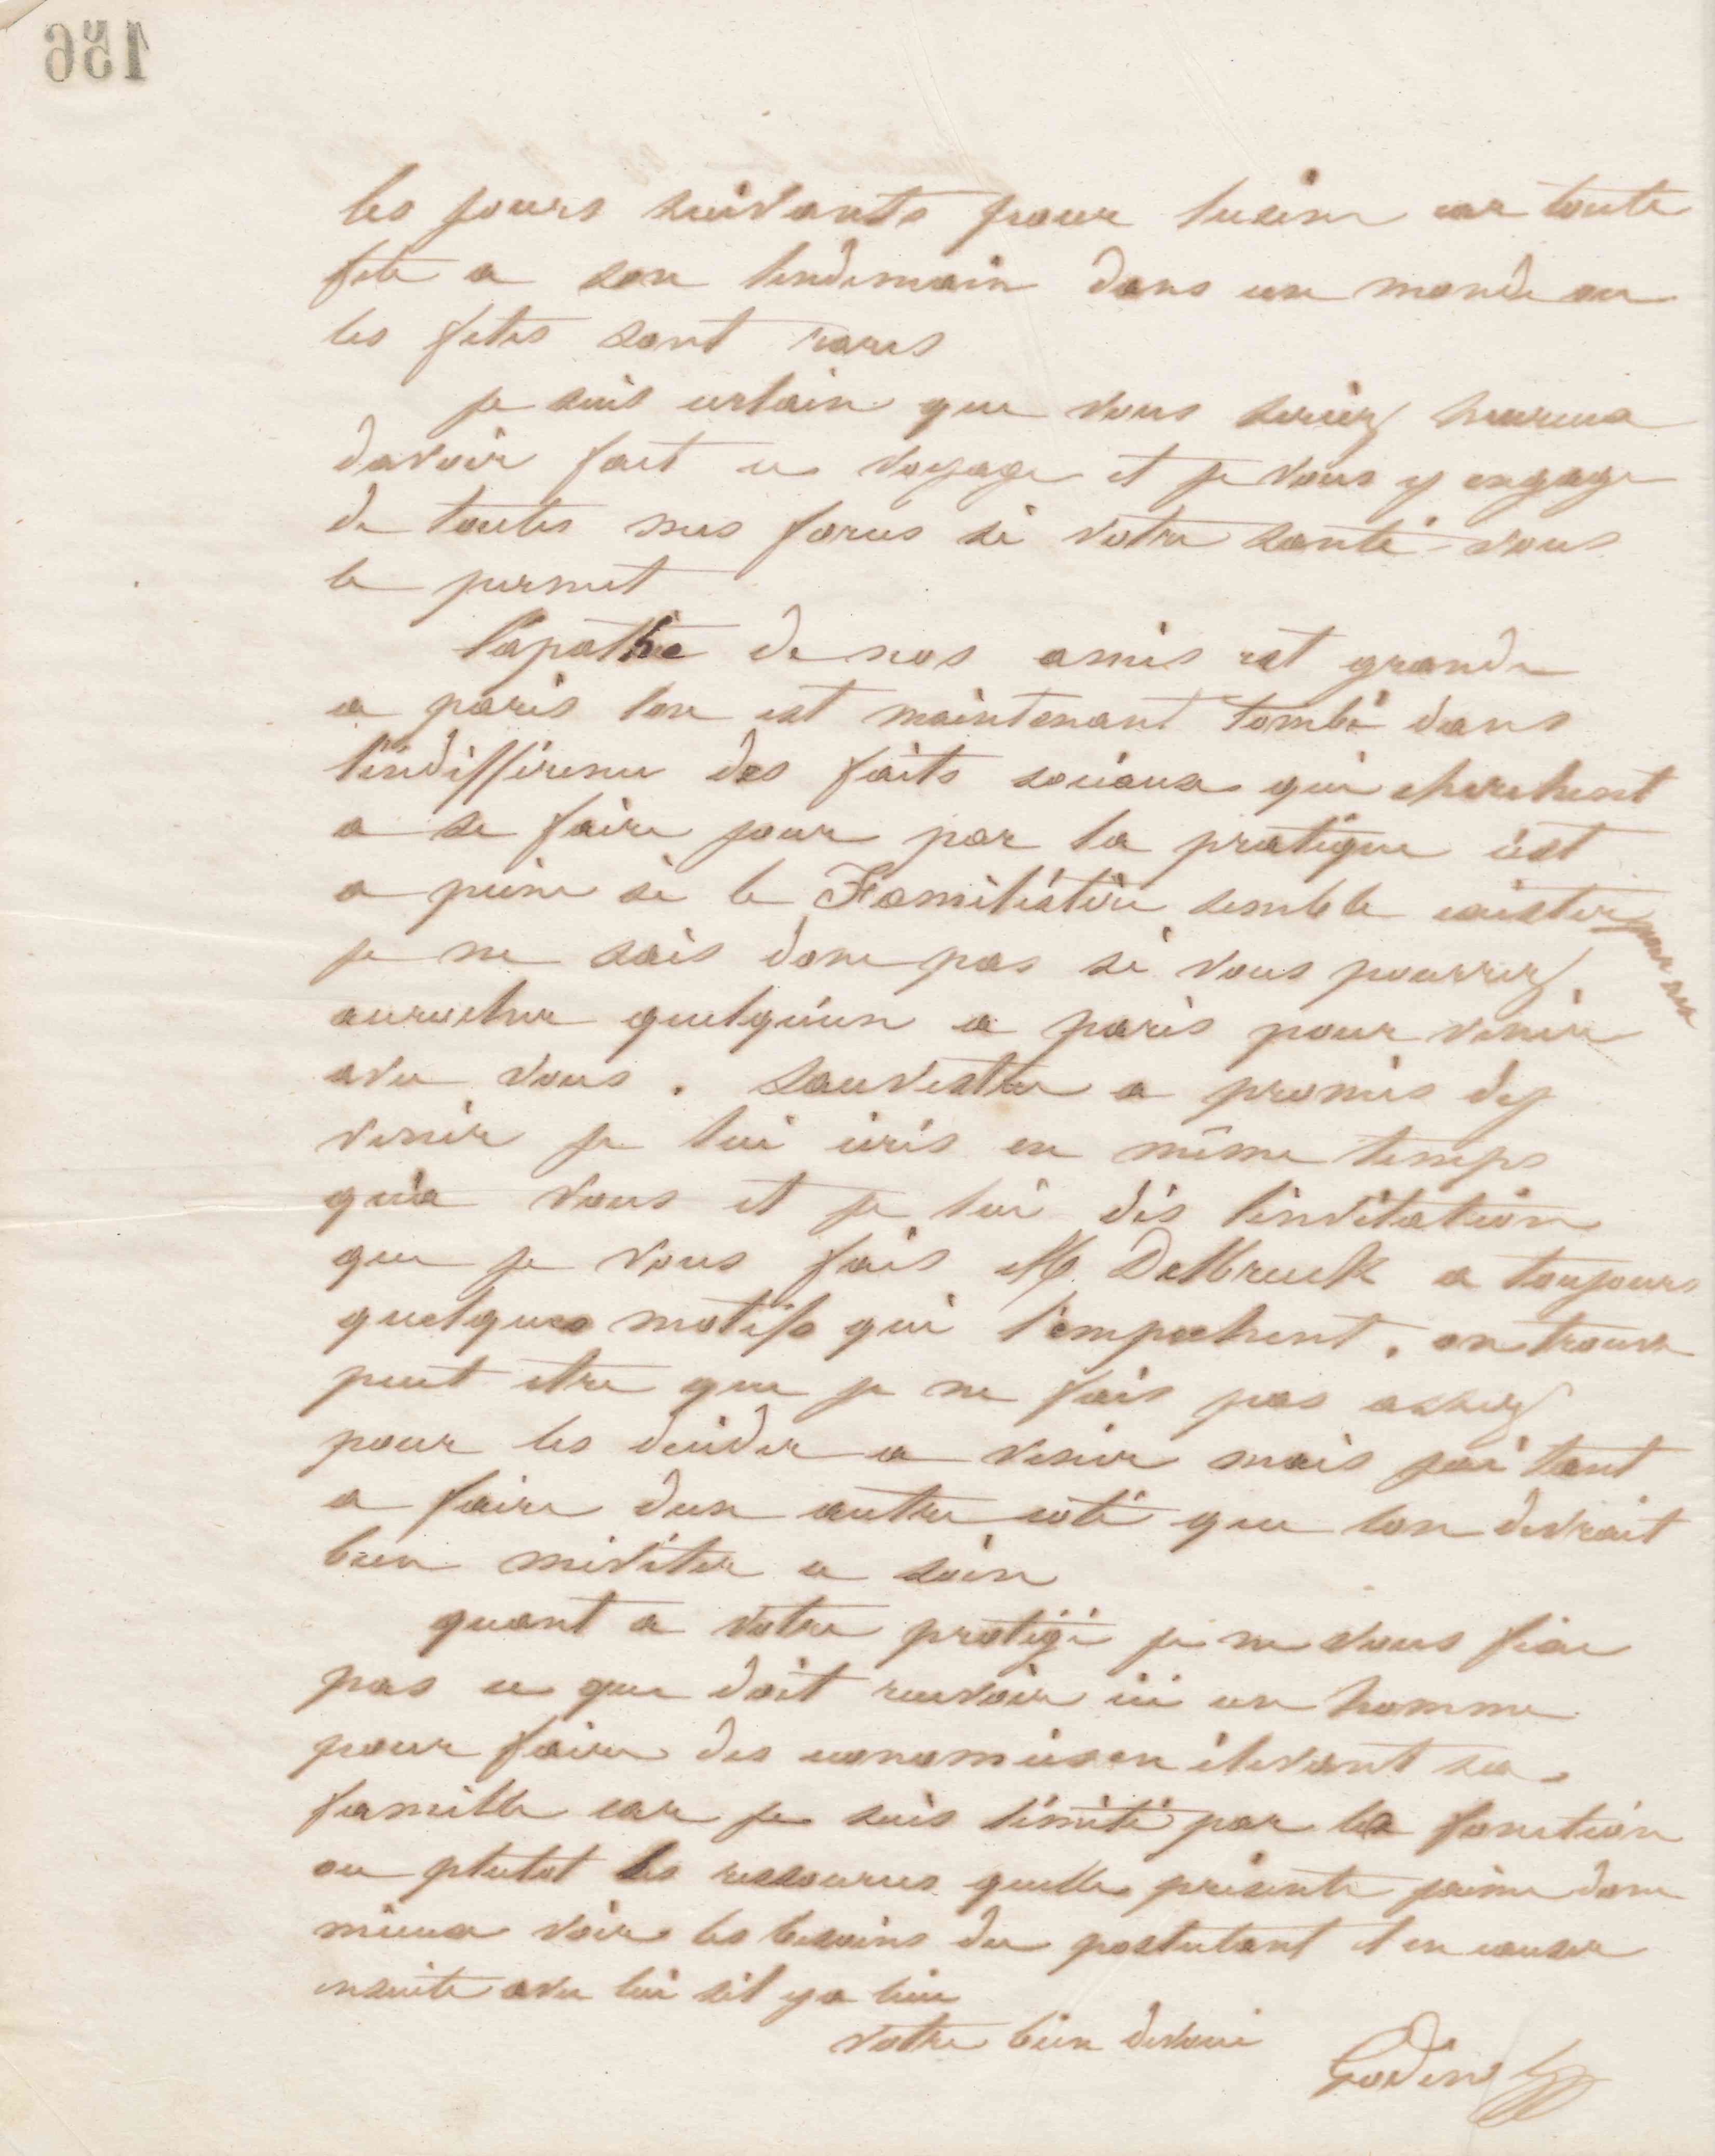 156
les jours suivants pour lusine car toute
fete a son lendemain dans un monde ou
les fetes sont rares
je suis certain que vous seriez heureux
davoir fait ce voyage et je vous y engage
de toutes mes forces si votre santé vous
le permet
l'apathie de nos amis est grande
a paris lon est maintenant tombé dans
l'indifférence des faits sociaux qui cherchent
a se faire jour par la pratique c'est
a peine si le Familistère semble exister pour eux
je ne sais donc pas si vous pourrez
accrocher quelqu'un a paris pour venir
avec vous. Sauvestre a promis dy
venir je lui écris en même temps
qu'a vous et je lui dis l'invitation
que je vous fais M. Delbruck a toujours
quelques motifs qui l'empechent. on trouve
peut etre que je ne fais pas assez
pour les décider a venir mais j'ai tant
a faire dun autre coté que lon devrait
bien m'éviter ce soin
quant a votre protégé je ne vous fixe
pas ce que doit recevoir ici un homme
pour faire des economies en élevant sa
famille car je suis limité par la fonction
ou plutot les ressources quelle présente j'aime donc
mieux voir les besoins du postulant et en causer
ensuite avec lui sil y a lieu
votre bien dévoué
Godin